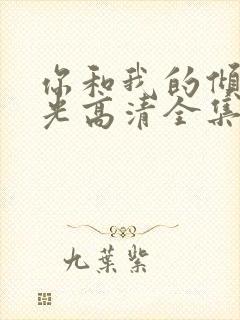 你和我的倾
光高清全集
九葉紫